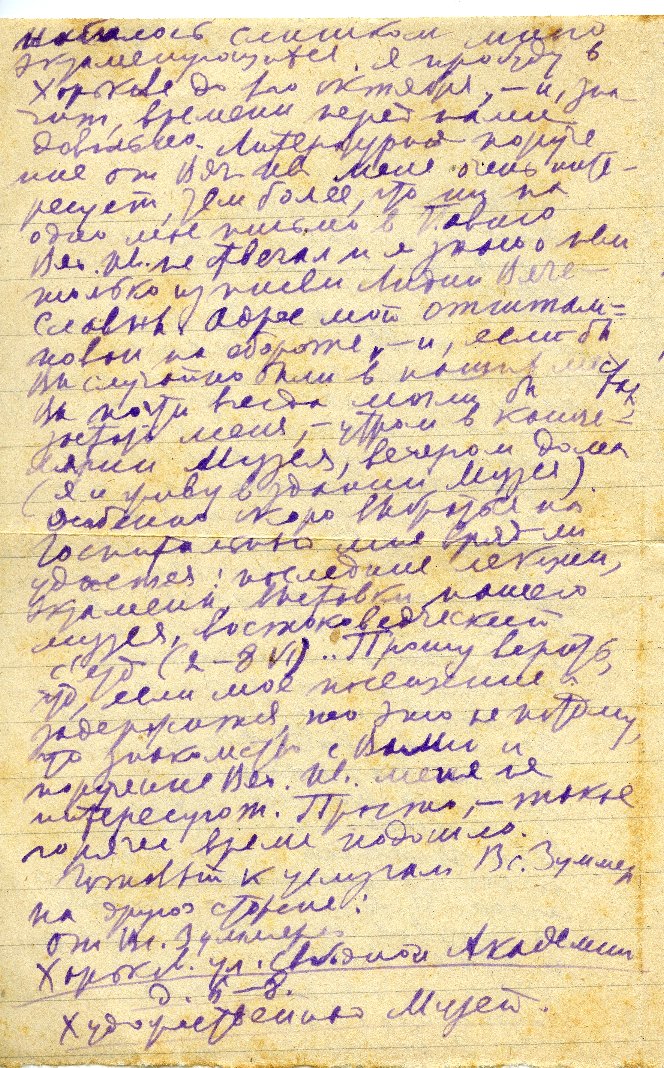 набралось слишком много
экзаменующихся. Я пробуду в
Харькове до 1го октября, – и, зна-
чит, времени перед нами
довольно. Литературное поруче
ние от Вяч. Ив. меня очень инте-
ресует, тем более, что ни на
одно мое письмо в Павию
Вяч. Ив. не отвечал и я знаю о нем
только из писем Лидии Вяче-
славны. Адрес мой отштам-
пован на обороте, – и, если бы
Вы случайно были в наших местах
Вы почти всегда могли бы
застать меня, – утром в канце-
лярии Музея, вечером дома
(я и живу в здании Музея).
Особенно скоро выбраться на
Госпитальную мне вряд ли
удастся: последние лекции,
экзамены, выставки нашего
музея, востоковедческий
съезд (2–8 VI)... Прошу верить,
что, если мое посещение и
задержится, то это не потому,
что знакомство с Вами и
поручение Вяч. Ив. меня не
интересуют. Просто, – такое
горячее время подошло.
Готовый к услугам Вс. Зуммер
на другой стороне:
от Вс. Зуммера
Харьков. ул. Свободной Академии
д. 6–8.
Художественный Музей.